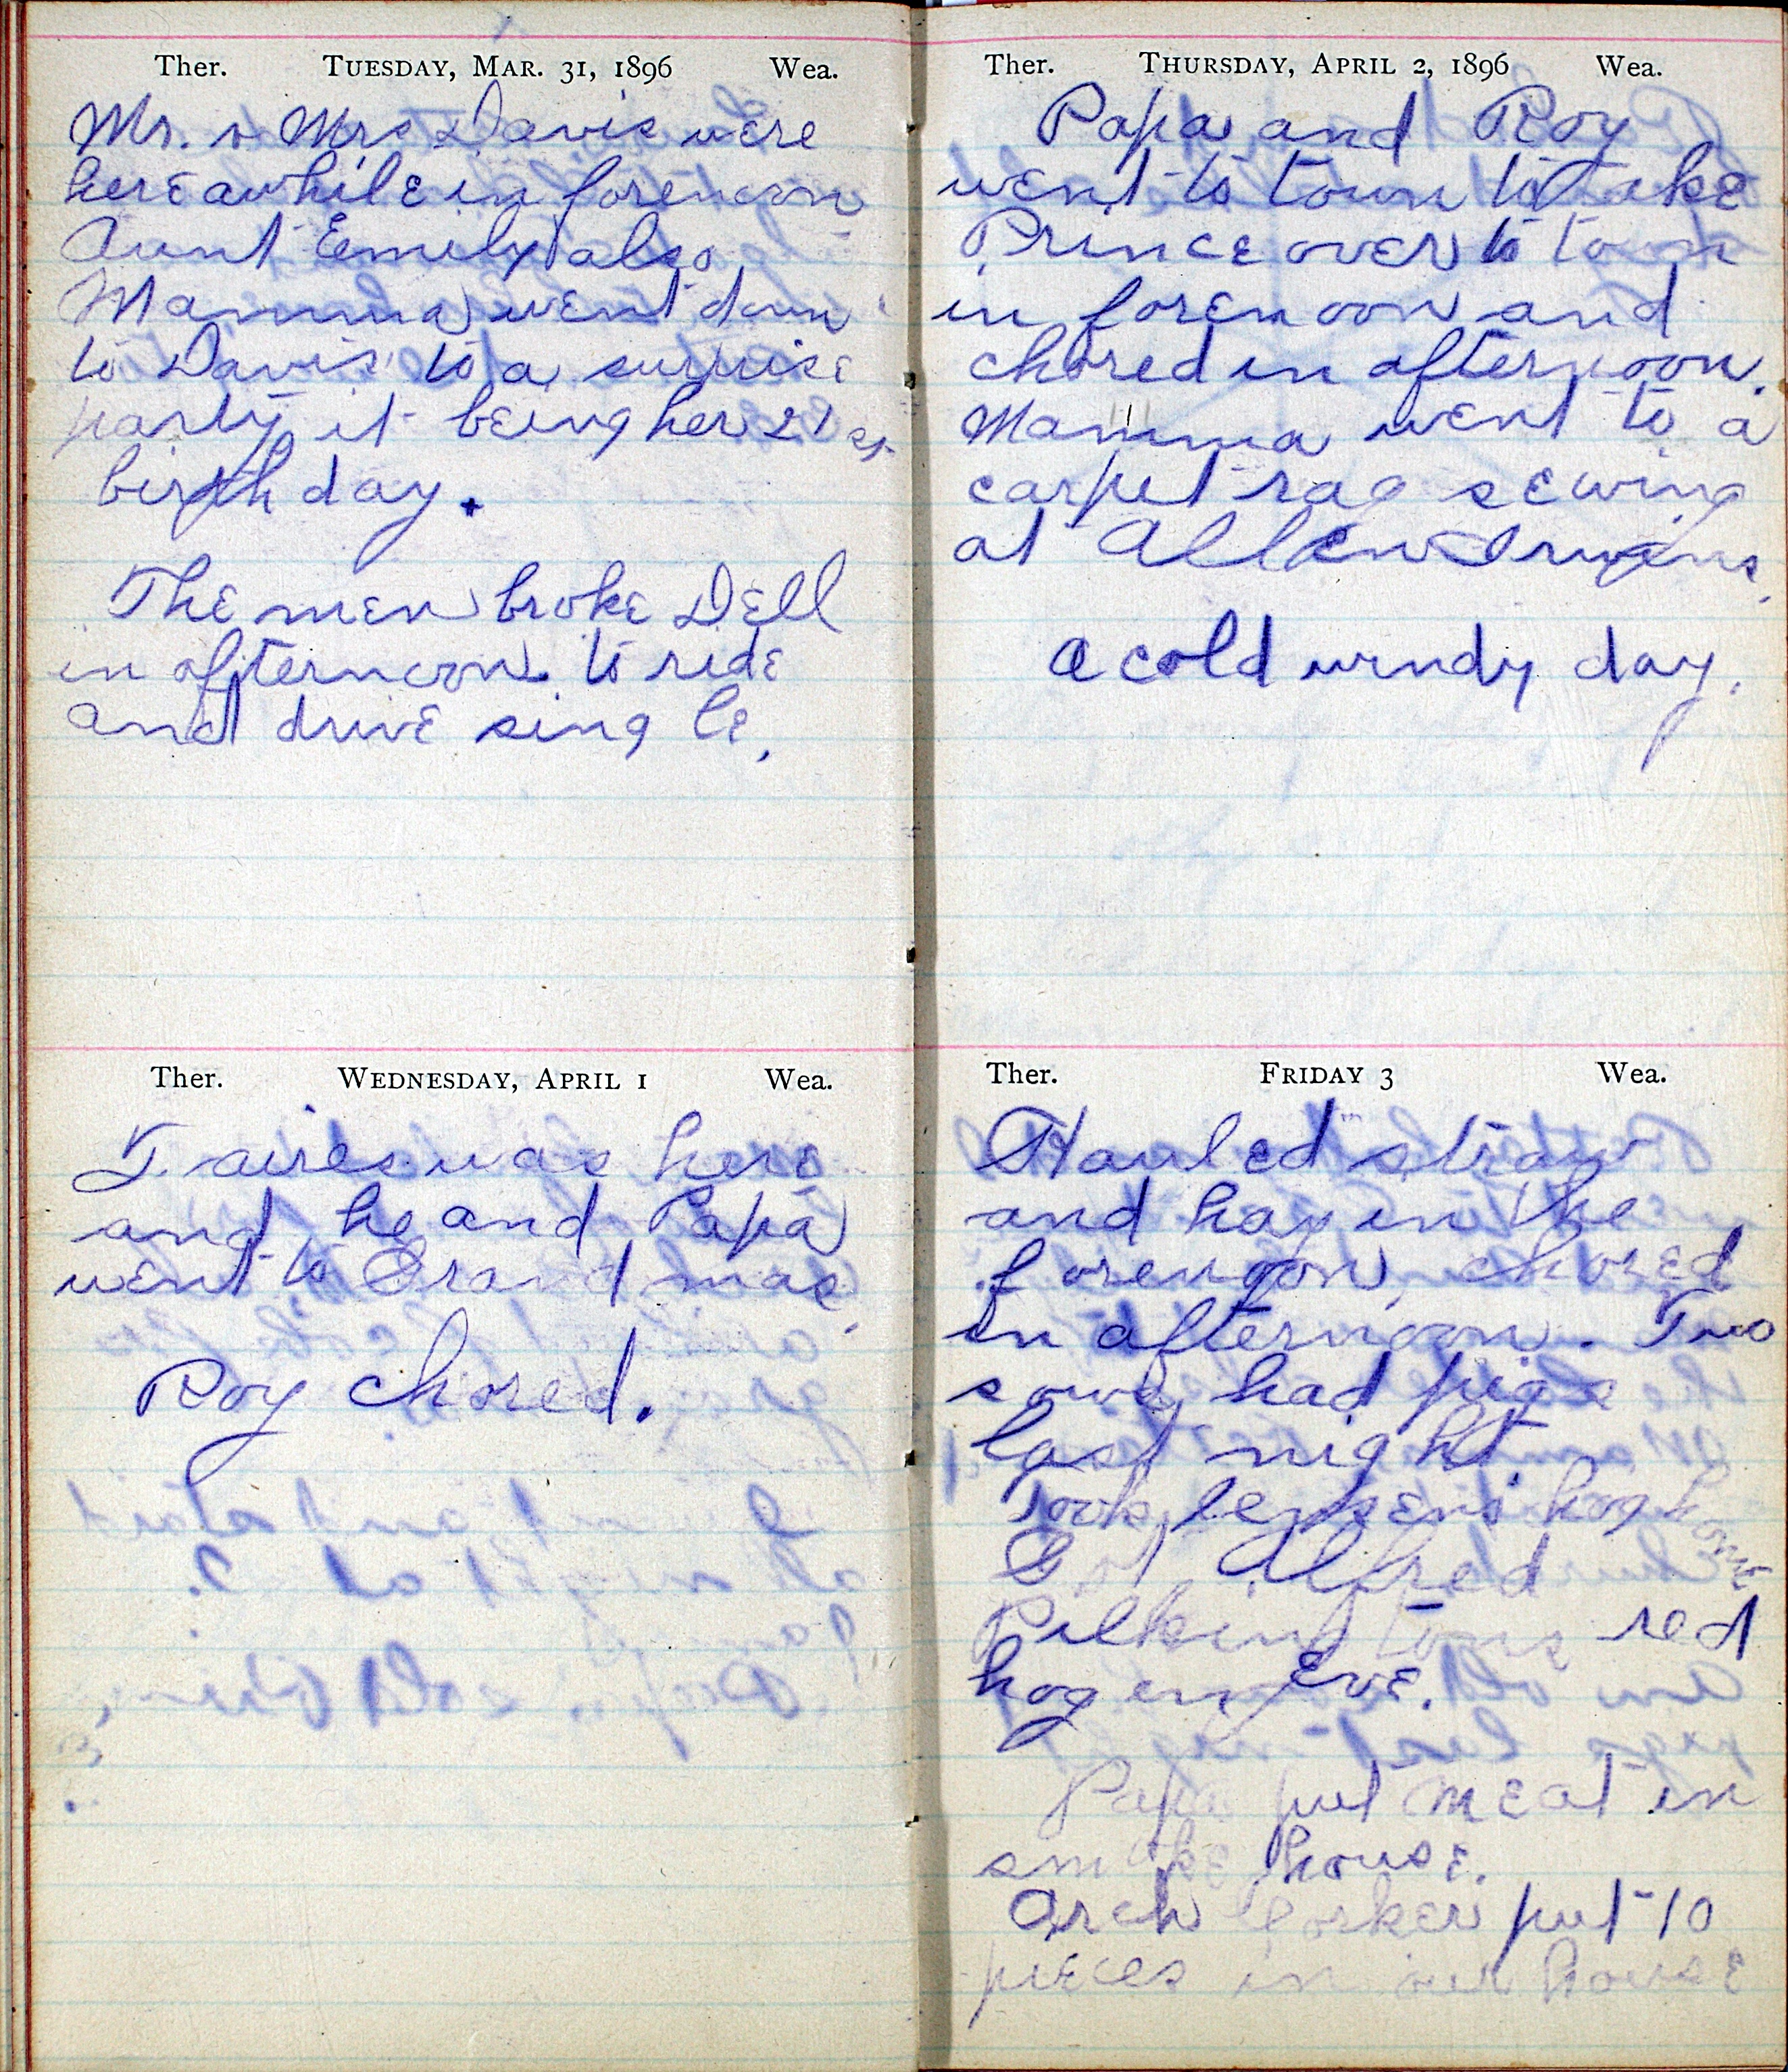 Ther. TUESDAY, MAR. 31, 1896 Wea.
Mr. & Mrs Davis were
here awhile in forenoon
Aunt Emily also
Mamma went down
to Davis' to a surprise
party it being her 21 st.
birthday.
The men broke Dell
in afternoon to ride
and drive sing le.
Ther. WEDNESDAY, APRIL 1 Wea.
was here
and he and Papa
went to Grand mas.
Roy chored.
Ther. THURSDAY, APRIL 2, 1896 Wea.
Papa and Roy
went to town to take
Prince over to town
in forenoon and
chored in afternoon.
Mamma went to a
carpet rag sewing
at Allen
a cold windy day.
Ther. FRIDAY 3 Wea.
Hauled straw
and hay in the
forenoon, chored
in afternoon. Two
sows had pigs
last night.
Took hog home
Got Alfred
Pilkintons red
hog in eve.
Papa put meat in
smoke house.
Arch put 10
pieces in our house